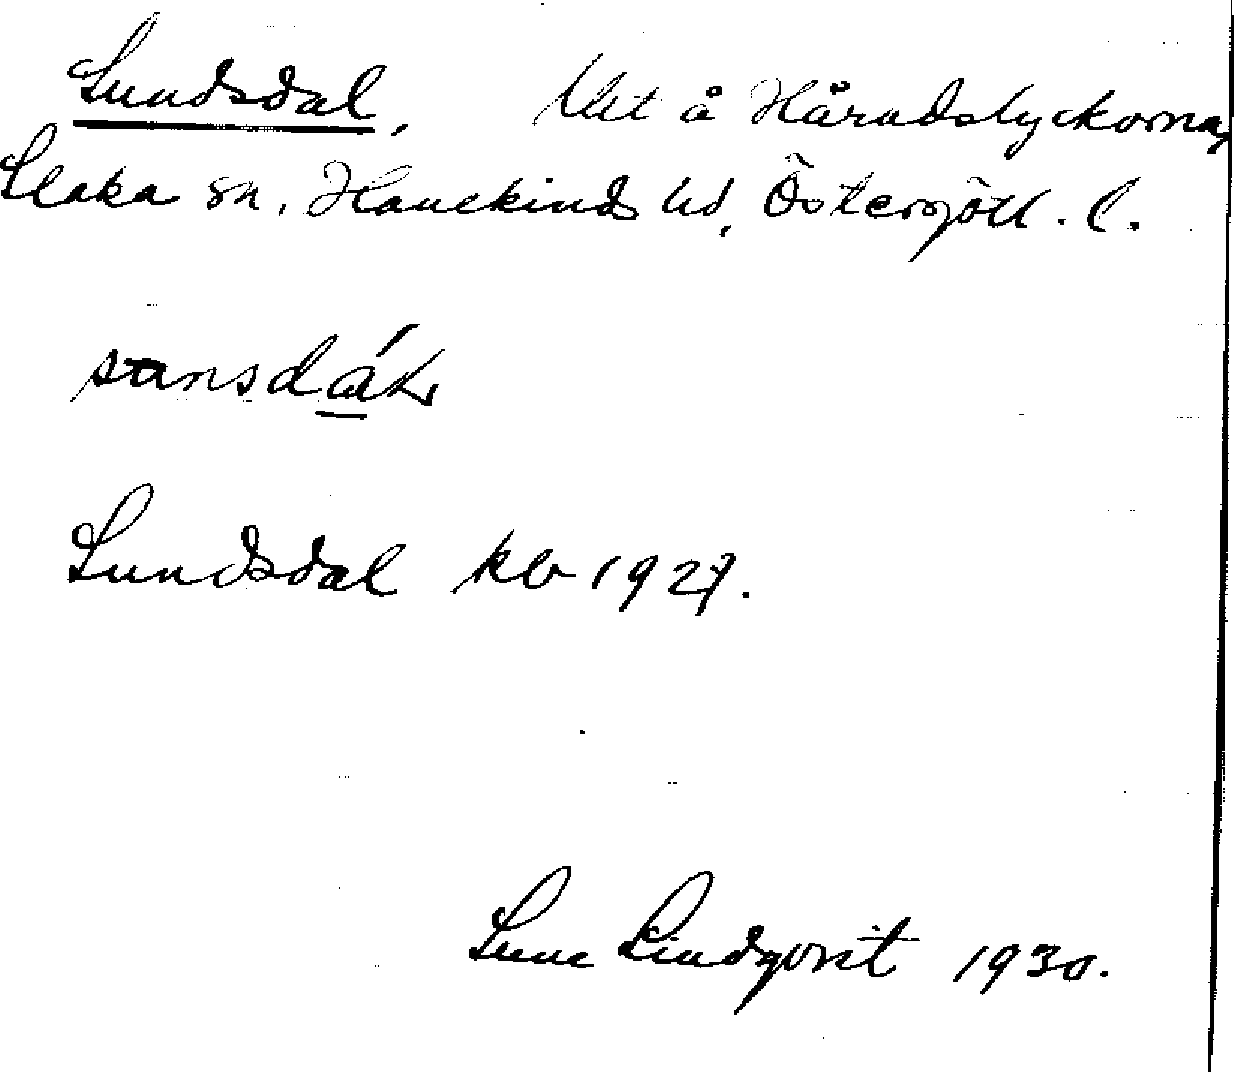 Sundsdal, Lht å Häradslyckorna,
Slaka sn, Hanekinds hd, Östergötl. l.
Sundsdal kb 1927.
Sune Lindqvist 1930.